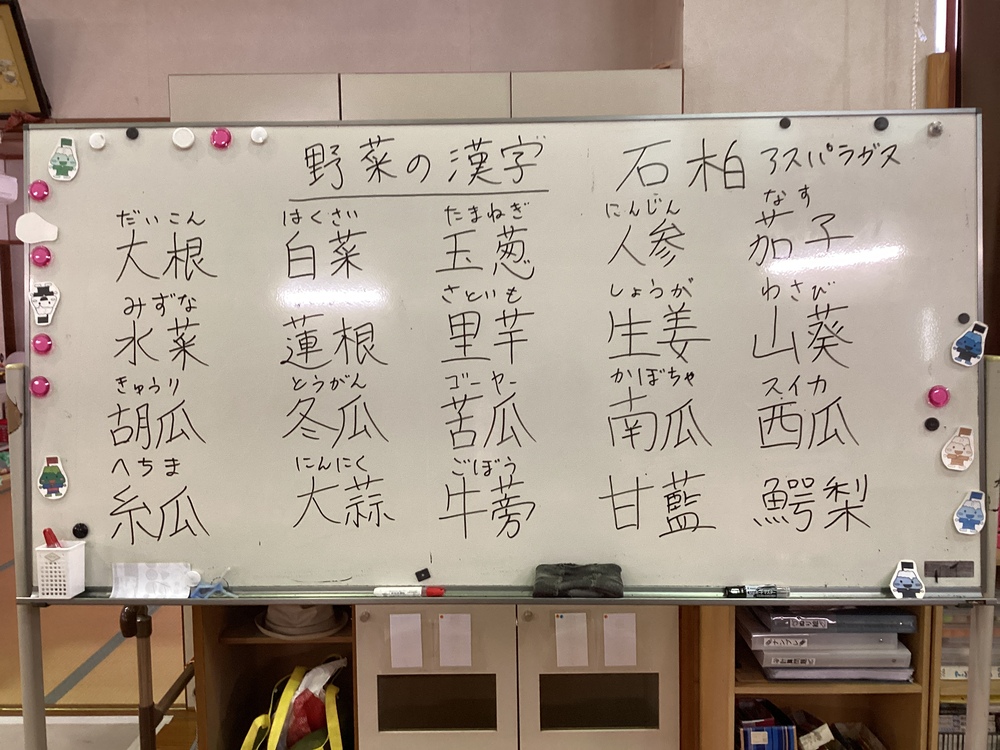 野菜の漢字
石柏 アスパラガス
だいこん はくさい たまねぎ にんじん なす
大根 白菜 玉葱 人参 茄子
みずな さといも しょうが わさび
水菜 蓮根 里芋 生姜 山葵
きゅうり とうがん ゴーヤー かぼちゃ スイカ
胡瓜 冬瓜 苦瓜 南瓜 西瓜
へちま にんにく ごぼう
糸瓜 大蒜 牛蒡 甘藍 鰐梨